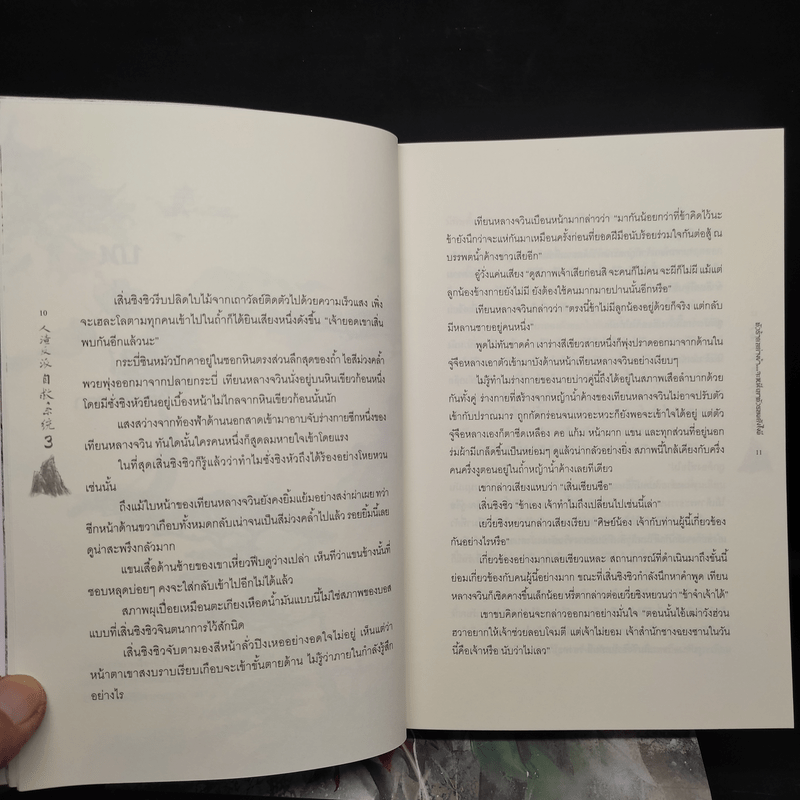 10
人渣反派自救系統
3
เสิ่นชิงชิวรีบปลิดใบไม้จากเถาวัลย์ติดตัวไปด้วยความเร็วแสง เพิ่ง
จะเฮละโลตามทุกคนเข้าไปในถ้ำก็ได้ยินเสียงหนึ่งดังขึ้น “เจ้ายอดเขาเสิ่น
พบกันอีกแล้วนะ”
กระบี่ซินหมัวปักคาอยู่ในซอกหินตรงส่วนลึกสุดของถ้ำ ไอสีม่วงคล้ำ
พวยพุ่งออกมาจากปลายกระบี่ เทียนหลางจวินนั่งอยู่บนหินเขียวก้อนหนึ่ง
โดยมีซั่งชิงหัวยืนอยู่เบื้องหน้าไม่ไกลจากหินเขียวก้อนนั้นนัก
แสงสว่างจากท้องฟ้าด้านนอกสาดเข้ามาอาบจับร่างกายซีกหนึ่งของ
เทียนหลางจวิน ทันใดนั้นใครคนหนึ่งก็สูดลมหายใจเข้าโดยแรง
ในที่สุดเสิ่นชิงชิวก็รู้แล้วว่าทำไมซั่งชิงหัวถึงได้ร้องอย่างโหยหวน
เช่นนั้น
ถึงแม้ใบหน้าของเทียนหลางจวินยังคงยิ้มแย้มอย่างสง่าผ่าเผย ทว่า
ซีกหน้าด้านขวาเกือบทั้งหมดกลับเน่าจนเป็นสีม่วงคล้ำไปแล้ว รอยยิ้มนี้เลย
ดูน่าสะพรึงกลัวมาก
แขนเสื้อด้านซ้ายของเขาเหี่ยวฟีบดูว่างเปล่า เห็นทีว่าแขนข้างนั้นที่
ชอบหลุดบ่อยๆ คงจะใส่กลับเข้าไปอีกไม่ได้แล้ว
สภาพผุเปื่อยเหมือนตะเกียงเหือดน้ำมันแบบนี้ไม่ใช่สภาพของบอส
แบบที่เสิ่นชิงชิวจินตนาการไว้สักนิด
เสิ่นชิงชิวจับตามองสีหน้าลั่วปิงเหออย่างอดใจไม่อยู่ เห็นแต่ว่า
หน้าตาเขาสงบราบเรียบเกือบจะเข้าขั้นตายด้าน ไม่รู้ว่าภายในกำลังรู้สึก
อย่างไร
เทียนหลางจวินเบือนหน้ามากล่าวว่า “มากันน้อยกว่าที่ข้าคิดไว้นะ
ข้ายังนึกว่าจะแห่กันมาเหมือนครั้งก่อนที่ยอดฝีมือนับร้อยร่วมใจกันต่อสู้ ณ
บรรพตน้ำค้างขาวเสียอีก”
อู๋วั่งแค่นเสียง “ดูสภาพเจ้าเสียก่อนสิ จะคนก็ไม่คน จะผีก็ไม่ผี แม้แต่
ลูกน้องข้างกายยังไม่มี ยังต้องใช้คนมากมายปานนั้นอีกหรือ”
เทียนหลางจวินกล่าวว่า “ตรงนี้ข้าไม่มีลูกน้องอยู่ด้วยก็จริง แต่กลับ
มีหลานชายอยู่คนหนึ่ง”
พูดไม่ทันขาดคำ เงาร่างสีเขียวสายหนึ่งก็พุ่งปราดออกมาจากด้านใน
จู๋จือหลางเอาตัวเข้ามาบังด้านหน้าเทียนหลางจวินอย่างเงียบๆ
ไม่รู้ทำไมร่างกายของนายบ่าวคู่นี้ถึงได้อยู่ในสภาพเสื่อลำบากด้วย
กันทั้งคู่ ร่างกายที่สร้างจากหญ้าน้ำค้างของเทียนหลางจวินไม่อาจปรับตัว
เข้ากับปราณมาร ถูกกัดกร่อนจนเหวอะหวะก็ยังพอจะเข้าใจได้อยู่ แต่ตัว
จู๋จือหลางเองก็ตาซีดเหลือง คอ แก้ม หน้าผาก แขน และทุกส่วนที่อยู่นอก
ร่มผ้ามีเกล็ดขึ้นเป็นหย่อมๆ ดูแล้วน่ากลัวอย่างยิ่ง สภาพนี้ใกล้เคียงกับครึ่ง
คนครึ่งงูตอนอยู่ในถ้ำหญ้าน้ำค้างเลยทีเดียว
เขากล่าวเสียงแหบว่า “เสิ่นเซียนซือ”
เสิ่นชิงชิว “ข้าเอง เจ้าทำไมถึงเปลี่ยนไปเช่นนี้เล่า”
เยวี่ยชิงหยวนกล่าวเสียงเรียบ “ศิษย์น้อง เจ้ากับท่านผู้นี้เกี่ยวข้อง
กันอย่างไรหรือ”
เกี่ยวข้องอย่างมากเลยเชียวแหละ สถานการณ์ที่ดำเนินมาถึงขั้นนี้
ย่อมเกี่ยวกับคนผู้นี้อย่างมาก ขณะที่เสิ่นชิงชิวกำลังนึกหาคำพูด เทียน
หลางจวินก็เชิดคางขึ้นเล็กน้อย หรี่ตากล่าวต่อเยวี่ยชิงหยวนว่า “ข้าจำเจ้าได้”
เขาขบคิดก่อนจะกล่าวออกมาอย่างมั่นใจ “ตอนนั้นไอ้เฒ่าวังฮ่วน
ฮวาอยากให้เจ้าช่วยลอบโจมตี แต่เจ้าไม่ยอม เจ้าสำนักชางฉยงซานในวัน
นี้คือเจ้าหรือ นับว่าไม่เลว”
11